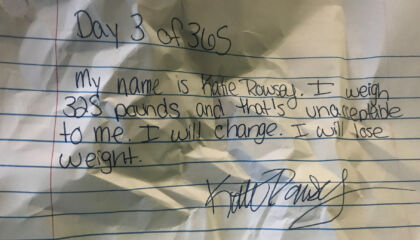 Day 3 of 365
My name is Katie Rowsey. I weigh
325 pounds and that's unacceptable
to me. I will change. I will lose
weight.
Katie Rowsey